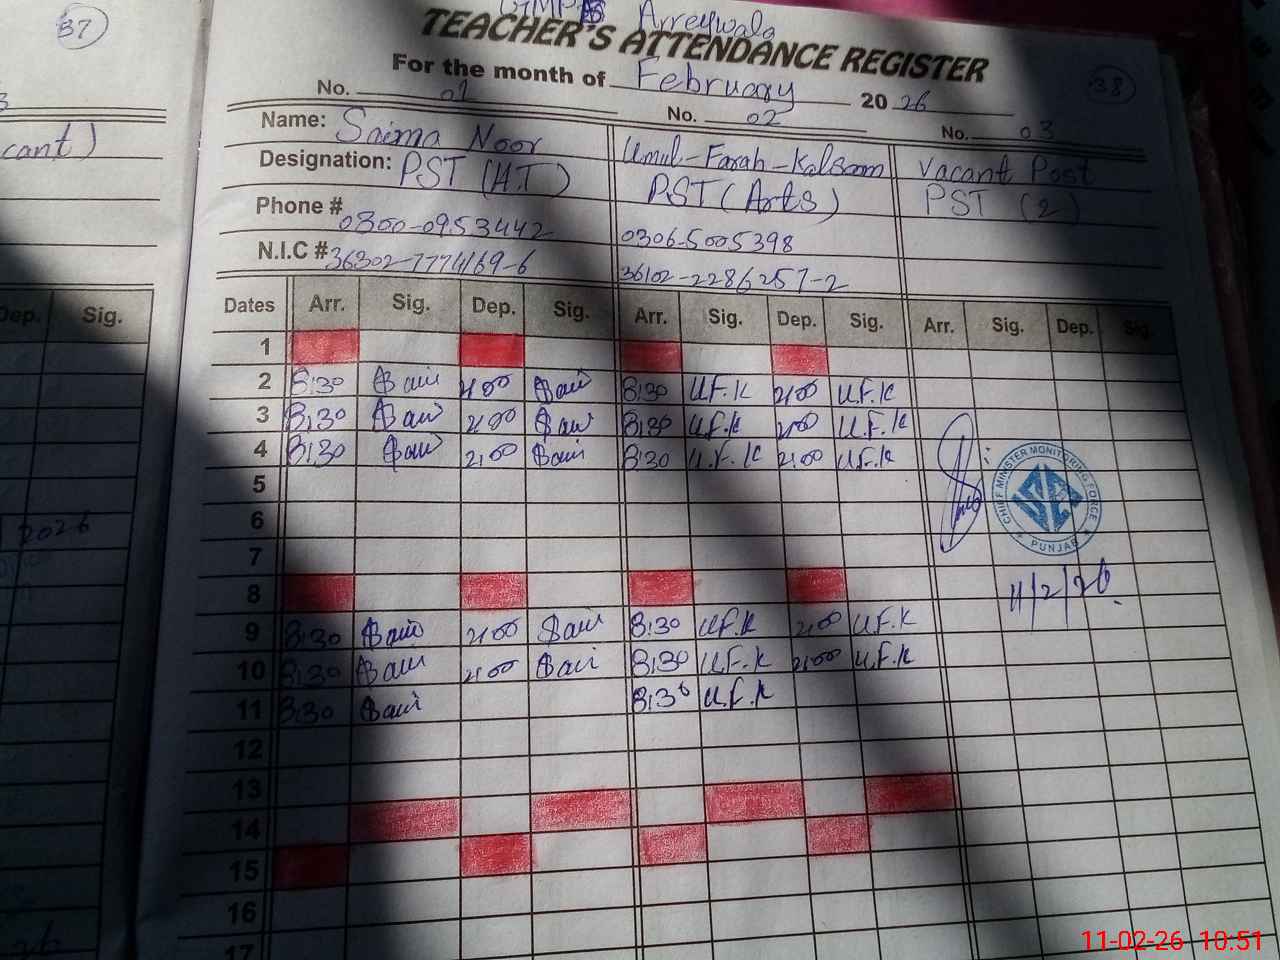 37
3
cant)
Dep. Sig.
2026
Arreywala
TEACHER'S ATTENDANCE REGISTER
38
For the month of February 20 26
No. 01 No. 02 No. 03
Name: Saima Noor Umul-Farah-Kalsoom Vacant Post
Designation: PST (H.T) PST (Arts) PST (2)
Phone # 0300-0953442 0306-5005398
N.I.C # 36302-7774169-6 36102-2286257-2
Dates Arr. Sig. Dep. Sig. Arr. Sig. Dep. Sig. Arr. Sig. Dep. Sig.
1
2 8:30 Sai 2:00 Sai 8:30 U.F.K 2:00 U.F.K
3 8:30 Sai 2:00 Sai 8:30 U.F.K 2:00 U.F.K
4 8:30 Sai 2:00 Sai 8:30 U.F.K 2:00 U.F.K
5
6
7
CHIEF MINISTER MONITORING FORCE
PUNJAB
8
11/2/26
9 8:30 Sai 2:00 Sai 8:30 U.F.K 2:00 U.F.K
10 8:30 Sai 2:00 Sai 8:30 U.F.K 2:00 U.F.K
11 8:30 Sai 8:30 U.F.K
12
13
14
15
16
17
11-02-26 10:51